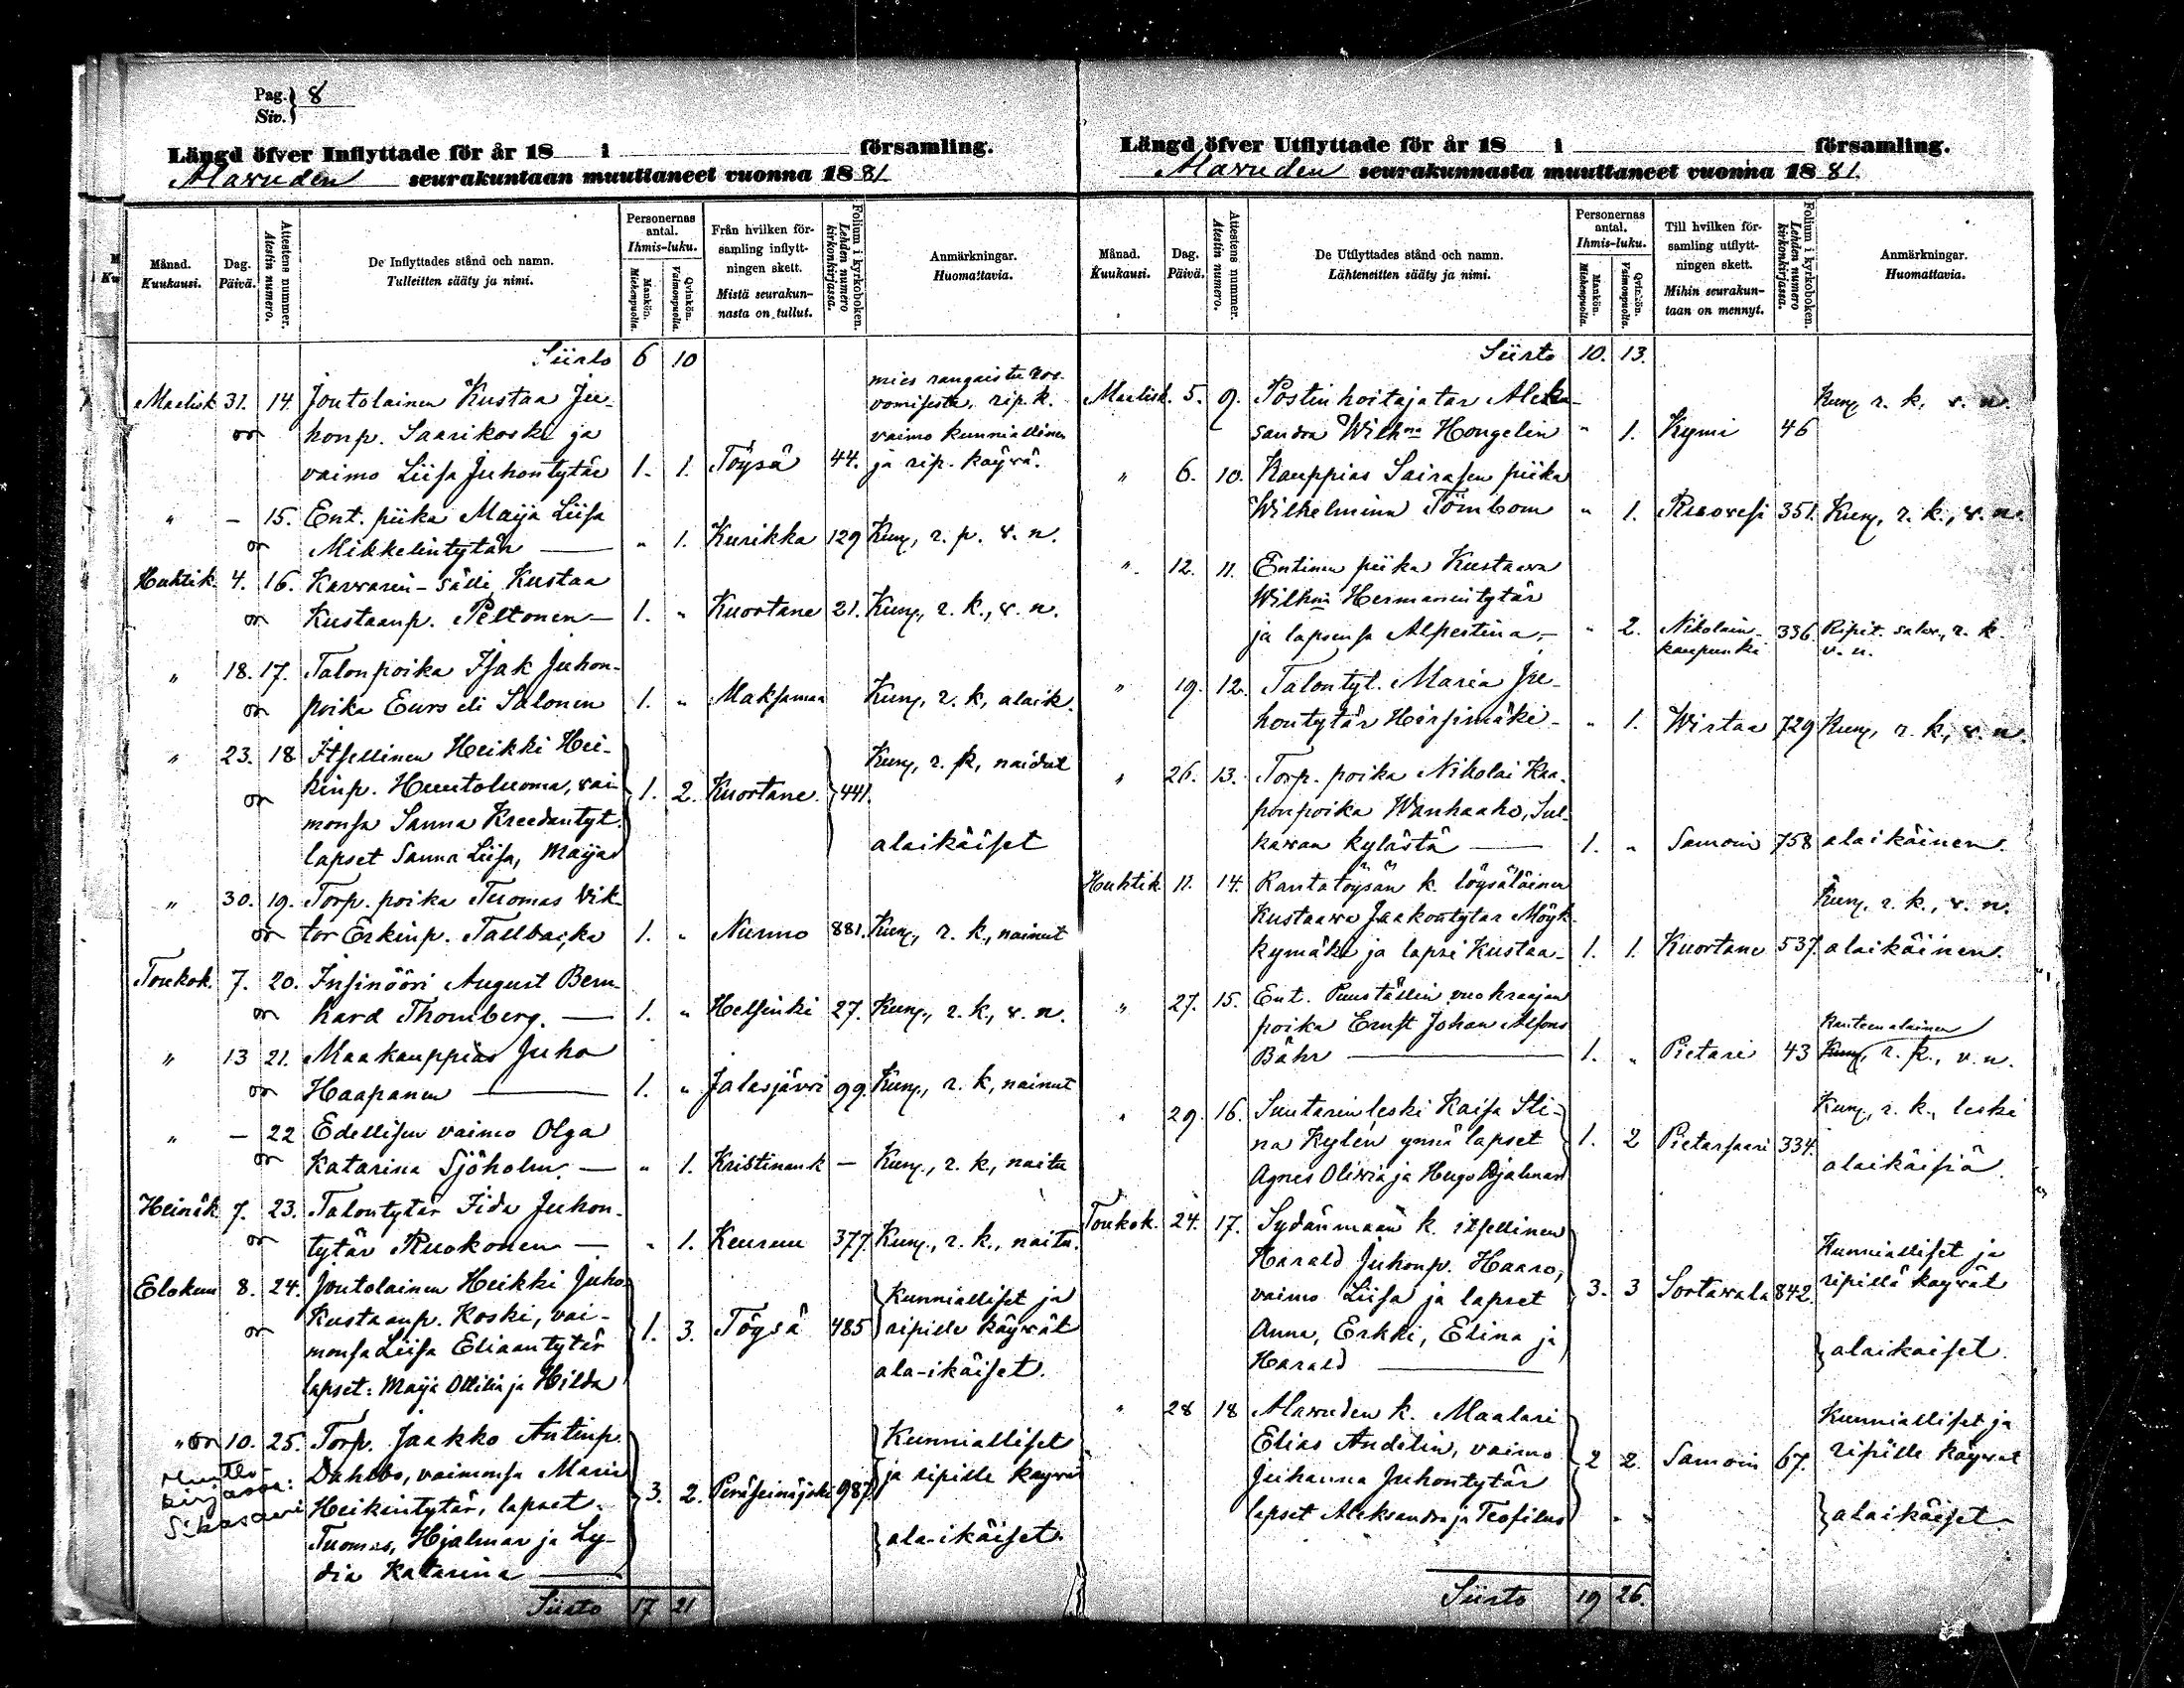 Pag. } 8
Siv. }
Längd öfver Inflyttade för år 18 i församling.
Alavuden seurakuntaan muuttaneet vuonna 1881
Månad. Kuukausi.
Dag. Päivä.
Attestens nummer. Atestin numero.
De Inflyttades stånd och namn. Tulleitten sääty ja nimi.
Personernas antal. Ihmis-luku.
Mankön. Miehenpuolta.
Qvinkön. Vaimonpuolta.
Från hvilken församling inflyttningen skett. Mistä seurakunnasta on tullut.
Folium i kyrkoboken. Lehden numero kirkonkirjassa.
Anmärkningar. Huomattavia.
Siirto 6 10
mies rangaistu
Maalisk 31. 14. Joutolainen Kustaa Ju- rip. k.
or honp. Saarikoski ja vaimo kunniallinen
vaimo Liisa Juhontytär 1. 1. Töysä 44. ja rip. käyvä.
" - 15. Ent. piika Maija Liisa
or Mikkelintytär — " 1. Kurikka 129 Kunn, r. p. v. n.
Huhtik. 4. 16. Karvarin-sälli Kustaa
or Kustaanp. Peltonen — 1. " Kuortane 21. Kunn, r. k., v. n.
" 18. 17. Talonpoika Isak Juhon-
or poika Eurs eli Salonen 1. " Maksamaa Kunn, r. k, alaik.
" 23. 18 Itsellinen Heikki Hei- Kunn, r. k, naidut
or kinp. Huntoluoma, vai- 1. 2. Kuortane 441.
monsa Sanna Kreedantyt.
lapset Sanna Liisa, Maija alaikäiset
" 30. 19. Torp. poika Tuomas Vik-
or tor Erkinp. Tallbacka 1. " Nurmo 881. Kunn, r. k., nainut
Toukok. 7. 20. Insinööri August Bern-
or hard Thomberg. — 1. " Helsinki 27. Kunn., r. k., v. n.
" 13 21. Maakauppias Juho
or Haapanen — 1. " Jalasjärvi 99. Kunn., r. k, nainut
" - 22 Edellisen vaimo Olga
or Katarina Sjöholm — " 1. Kristinank — Kunn., r. k, naitu
Heinäk 7. 23. Talontytär Iida Juhon-
or tytär Ruokonen — " 1. Keuruu 377. Kunn., r. k., naitu.
Elokuu 8. 24. Joutolainen Heikki Juho Kunnialliset ja
Kustaanp. Koski, vai- 1. 3. Töysä 485 ripille käyvät
or monsa Liisa Eliaantytär
lapset: Maija Ollilia ja Hilda ala-ikäiset.
" or 10. 25. Torp. Jaakko Antinp. Kunnialliset
Muutto- Dahlbo, vaimonsa Maria ja ripille käyvä
kirjassa: Heikintytär, lapset. 3. 2. Peräseinäjoki 987.
Sikasaari Tuomas, Hjalmar ja Ly- ala-ikäiset.
dia Katarina —
Siirto 17 21
Längd öfver Utflyttade för år 18 i församling.
Alavuden seurakunnasta muuttaneet vuonna 1881.
Månad. Kuukausi.
Dag. Päivä.
Attestens nummer. Atestin numero.
De Utflyttades stånd och namn. Lähteneitten sääty ja nimi.
Personernas antal. Ihmis-luku.
Mankön. Miehenpuolta.
Qvinkön. Vaimonpuolta.
Till hvilken församling utflyttningen skett. Mihin seurakuntaan on mennyt.
Folium i kyrkoboken. Lehden numero kirkonkirjassa.
Anmärkningar. Huomattavia.
Siirto 10. 13.
Maalisk. 5. 9. Postin hoitajatar Alek- Kunn r. k. v. n.
sandra Wilhna Hongelin " 1. Kymi 46
" 6. 10. Kauppias Sairasen piika
Wilhelmina Törnbom " 1. Ruovesi 351. Kunn, r. k., v. n.
" 12. 11. Entinen piika Kustaava
Wilhna Hermanintytär
ja lapsensa Alpertina — " 2. Nikolain- 336. Ripit. salv., r. k.
kaupunki v. n.
" 19. 12. Talontyt. Maria Ju-
hontytär Hirsimäki — " 1. Wirtaa 729 Kunn, r. k., v. n.
" 26. 13. Torp. poika Nikolai Kaa-
ponpoika Wanhaaho, Sul-
kavan kylästä — 1. " Samoin 758 alaikäinen.
Huhtik. 11. 14. Rantatöysän k. löysäläinen Kunn, r. k., v. n.
Kustaava Jaakontytar Möyk-
kymäki ja lapsi Kustaa — 1. 1. Kuortane 537. alaikäinen.
" 27. 15. Ent. Puustellin vuokraajan
poika Ernst Johan Alfons Ranteenalainen
Bähr — 1. " Pietari 43 Kunn, r. k., v. n.
" 29. 16. Suutarin leski Kaisa Sti- Kunn, r. k., leski
na Kylén ynnä lapset 1. 2 Pietarsaari 334.
Agnes Olivia ja Hugo Hjalmar alaikäisiä.
Toukok. 24. 17. Sydänmaan k. itsellinen
Harald Juhonp. Haaro, Kunnialliset ja
vaimo Liisa ja lapset 3. 3 Sortavala 842. ripillä käyvät
Anna, Erkki, Elina ja
Harald — alaikäiset.
" 28 18 Alavuden k. Maalari Kunnialliset ja
Elias Andelin, vaimo 2 2. Samoin 67. ripille käyvät
Juhanna Juhontytär
lapset Aleksandra ja Teofilus alaikäiset.
Siirto 19 26.